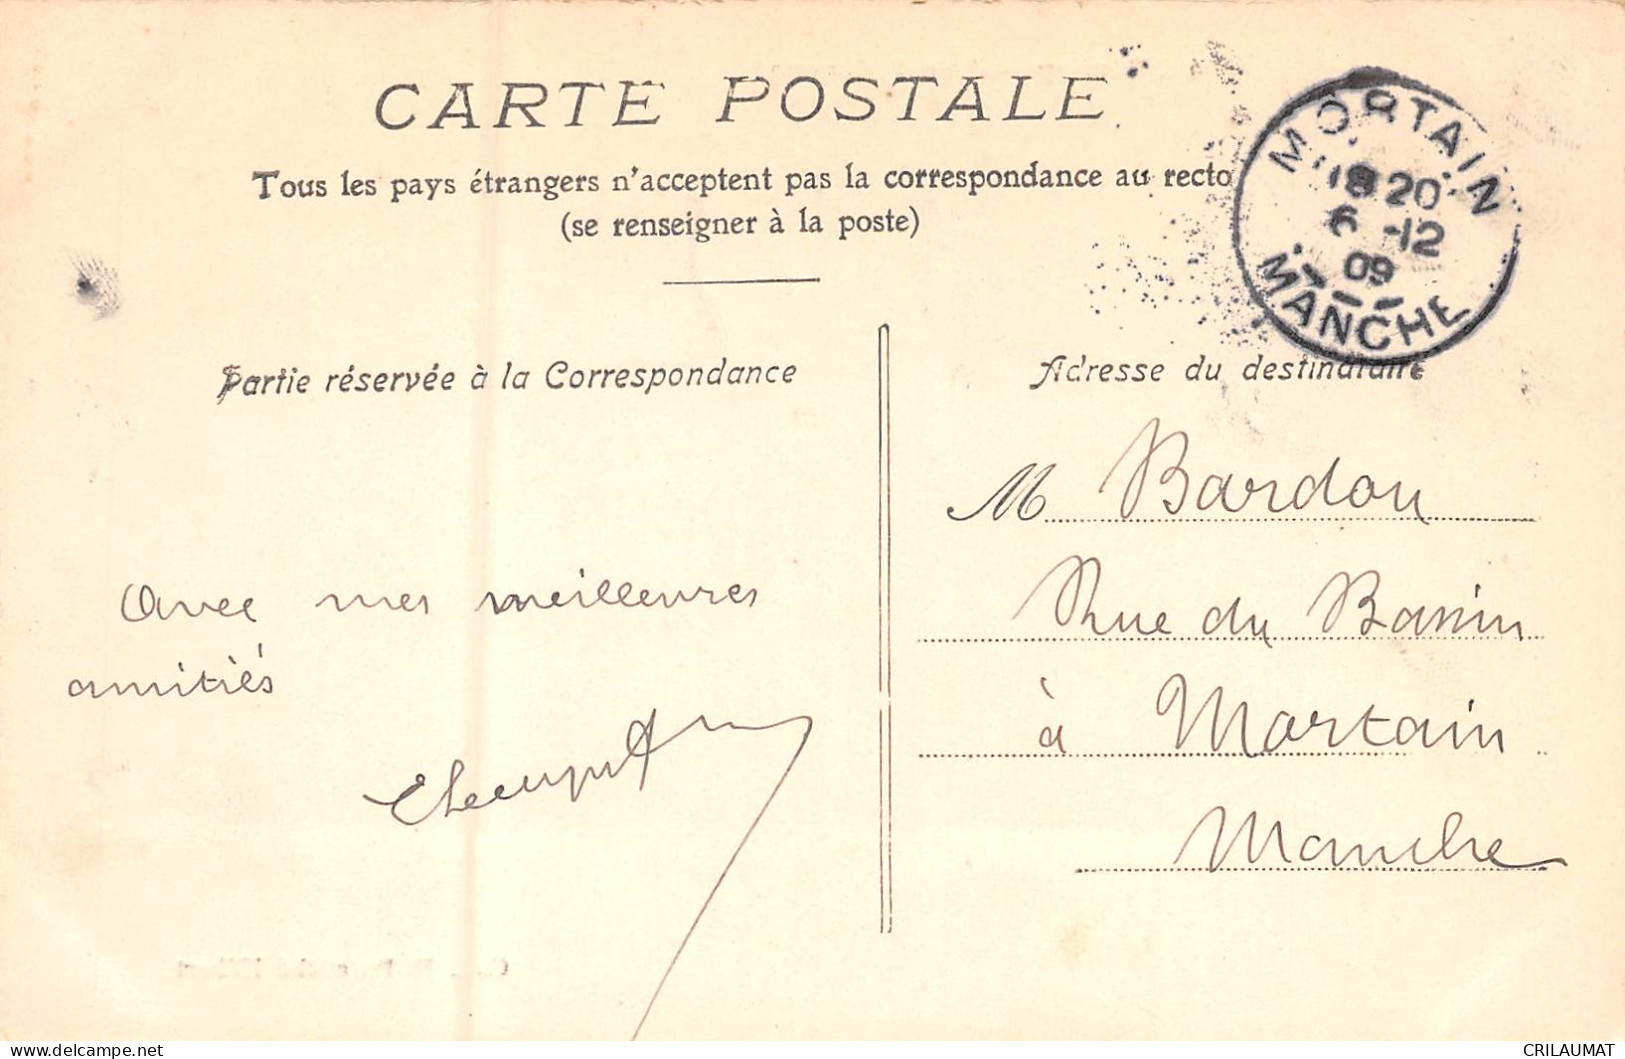 CARTE POSTALE
Tous les pays étrangers n'acceptent pas la correspondance au recto
(se renseigner à la poste)
MORTAIN
18 20
6 -12
09
MANCHE
Partie réservée à la Correspondance
Adresse du destinataire
M Bardou
Rue du Bassin
à Mortain
Manche
Avec mes meilleures
amitiés
www.delcampe.net
CRILAUMAT